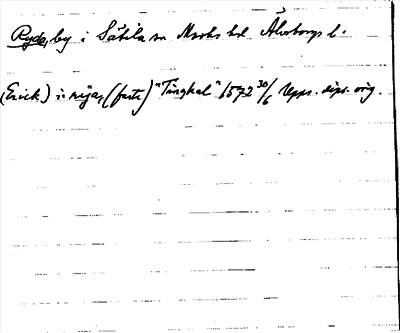 Ryda, by i Sätila sn Marks hd Älvsborgs l.
(Erick) i rijda, (faste) "Tingkal" 1572 30/6 Upps. dipl. orig.